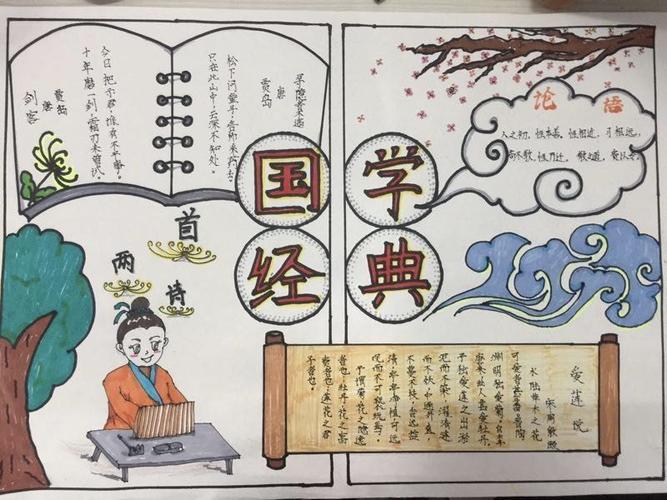 国学
经典
寻隐者不遇
唐
贾岛
松下问童子，言师采药去。
只在此山中，云深不知处。
剑客
唐
贾岛
十年磨一剑，霜刃未曾试。
今日把示君，谁有不平事。
两首诗
论语
人之初，性本善，性相近，习相远，
苟不教，性乃迁，教之道，贵以专。
爱莲说
宋周敦颐
水陆草木之花
可爱者甚蕃晋陶
渊明独爱菊自李
唐来世人甚爱牡丹
予独爱莲之出淤
泥而不染濯清涟
而不妖中通外直
不蔓不枝香远益
清亭亭净植可远
观而不可亵玩焉
予谓菊花之隐逸
者也牡丹花之富
贵者也莲花之君
子者也。